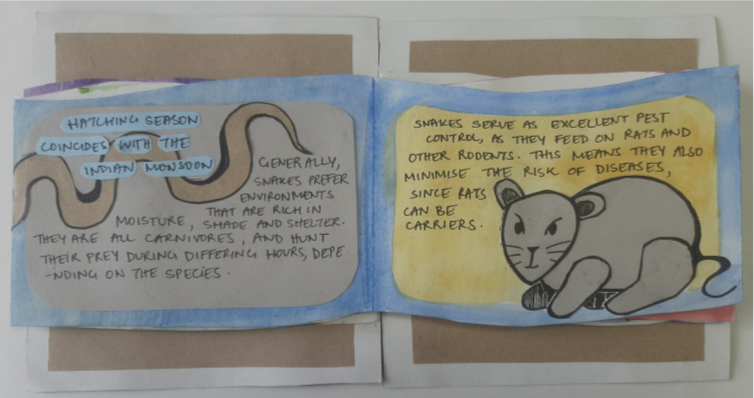 HATCHING SEASON
COINCIDES WITH THE
INDIAN MONSOON
GENERALLY,
SNAKES PREFER
ENVIRONMENTS
THAT ARE RICH IN
MOISTURE, SHADE AND SHELTER.
THEY ARE ALL CARNIVORES, AND HUNT
THEIR PREY DURING DIFFERING HOURS, DEPE
-NDING ON THE SPECIES.
SNAKES SERVE AS EXCELLENT PEST
CONTROL, AS THEY FEED ON RATS AND
OTHER RODENTS. THIS MEANS THEY ALSO
MINIMISE THE RISK OF DISEASES,
SINCE RATS
CAN BE
CARRIERS.